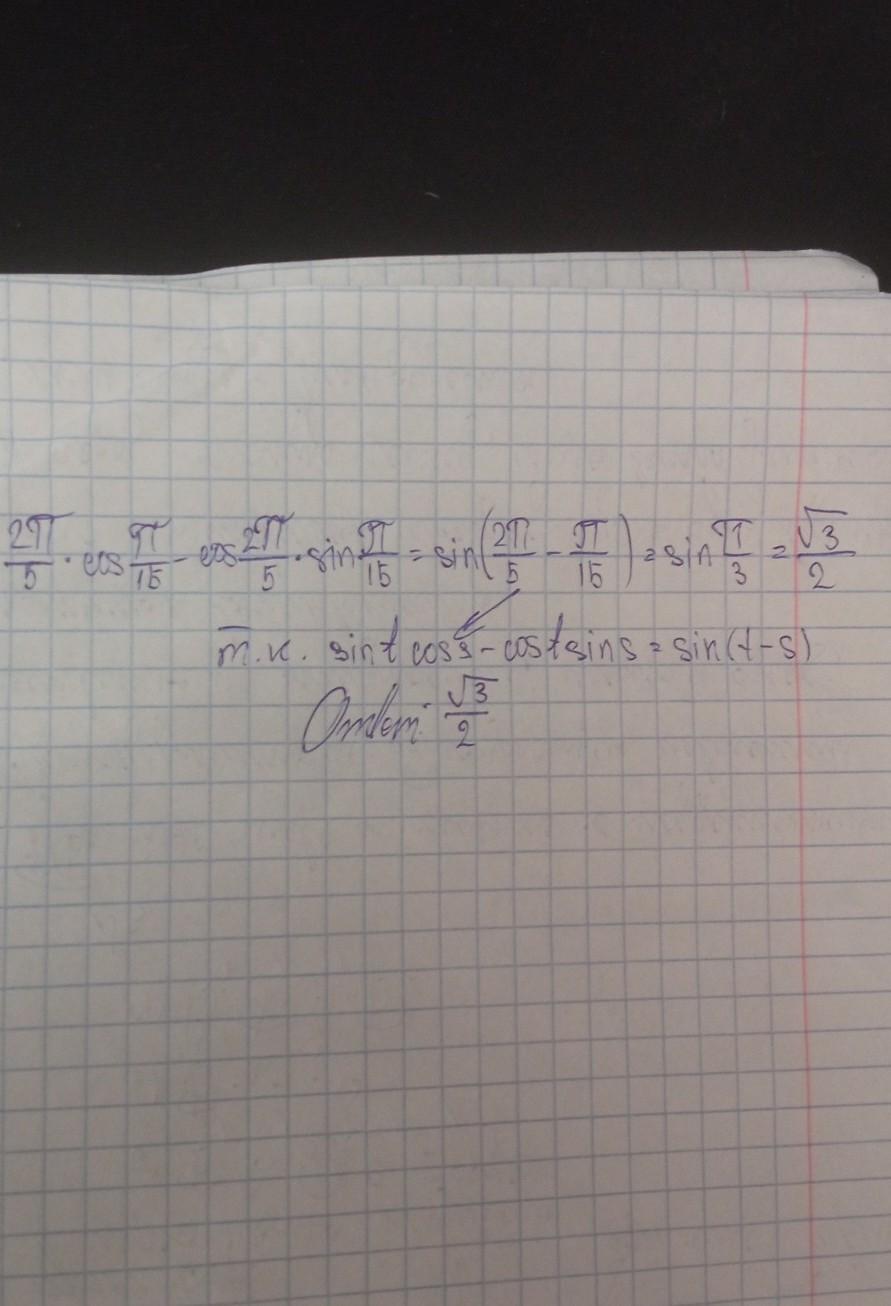 2π/5 · cos π/15 - cos 2π/5 · sin π/15 = sin(2π/5 - π/15) = sin π/3 = √3/2
т.к. sin t cos s - cos t sin s = sin(t-s)
Ответ: √3/2